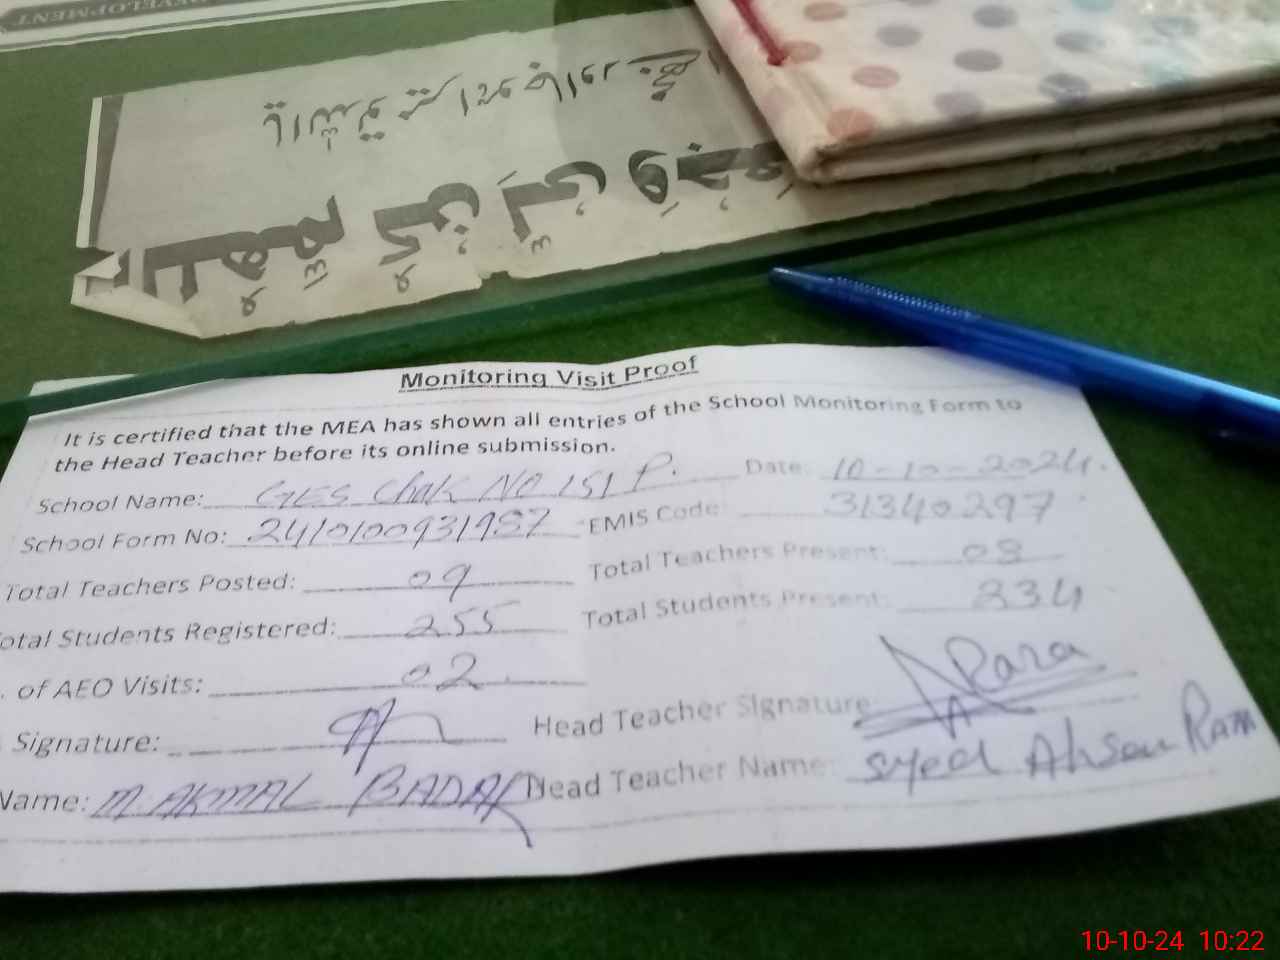 DEVELOPMENT
Monitoring Visit Proof
It is certified that the MEA has shown all entries of the School Monitoring Form to
the Head Teacher before its online submission.
School Name: GES Chak NO 151 P. Date: 10-10-2024.
School Form No: 2410100931987 EMIS Code: 31340297
Total Teachers Posted: 09 Total Teachers Present: 08
otal Students Registered: 255 Total Students Present: 234
. of AEO Visits: 02
Signature: Head Teacher Signature: Raza
Name: M. AKMAL BADAR Head Teacher Name: Syed Ahsan Raza
10-10-24 10:22